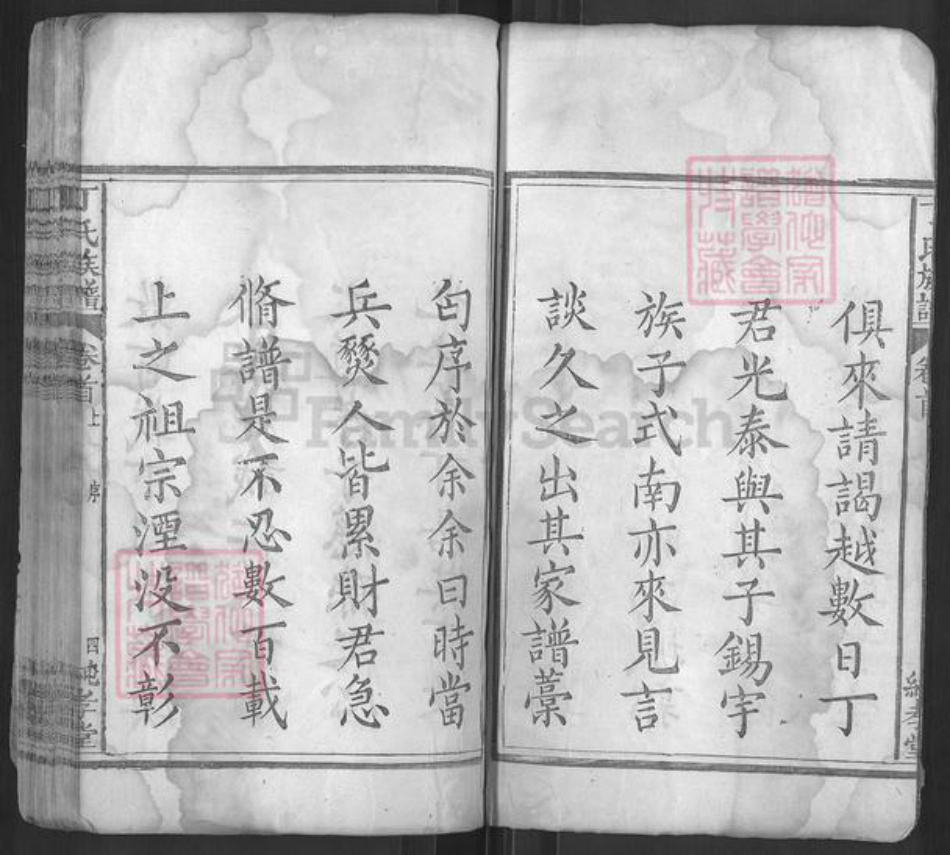 俱來請謁越數日丁
君光泰與其子錫宇
族子式南亦來見言
談久之出其家譜藁
匄序於余余曰時當
兵燹人皆累財君急
脩譜是不忍數百載
上之祖宗湮没不彰
丁氏族譜
卷首上
序
四
純孝堂
丁氏族譜
卷首
純孝堂
FamilySearch